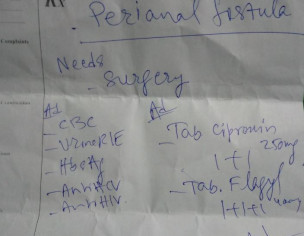 Perianal fistula
Needs
- surgery
Ad
- CBC
- Urine R/E
- HbsAg
- Anti HCV
- Anti HIV
Ad
- Tab Ciproxin
250mg
1+1
- Tab. Flagyl
1+1+1